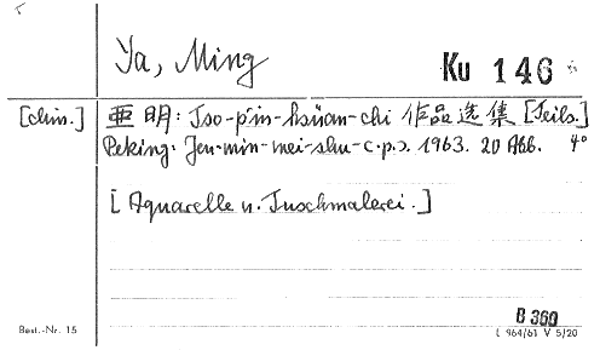 Ya, Ming
Ku 146
[chin.] 亜明: Tso-p'in-hsüan-chi 作品选集 [Teils.]
Peking: Jen-min-mei-shu-c.p.s. 1963. 20 Abb. 4°
[Aquarelle u. Tuschmalerei.]
B 360
Best.-Nr. 15
L 964/61 V 5/20